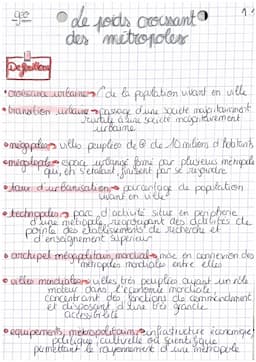 géo
Le poids croissant
des métropoles
Définitions
croissance urbaine → ↗ de la population vivant en ville
transition urbaine → passage d'une société majoritairement
rurale à une société majoritairement
urbaine
mégapoles → villes peuplées de + de 10 millions d'habitants
mégalopoles → espace urbanisé formé par plusieurs métropoles
qui, en s'étalant, finissent par se rejoindre
taux d'urbanisation → pourcentage de population
vivant en ville
technopoles → parc d'activité situé en périphérie
d'une métropole, regroupant des activités de
pointe, des établissements de recherche et
d'enseignement supérieur
archipel mégapolitain mondial → mise en connexion des
métropoles mondiales entre elles
villes mondiales → villes très peuplées ayant un rôle
moteur dans l'économie mondiale,
concentrant des fonctions de commandement
et disposant d'une très grande
accessibilité
équipements métropolitains → infrastructure économique,
politique, culturelle ou scientifique
permettant le rayonnement d'une métropole